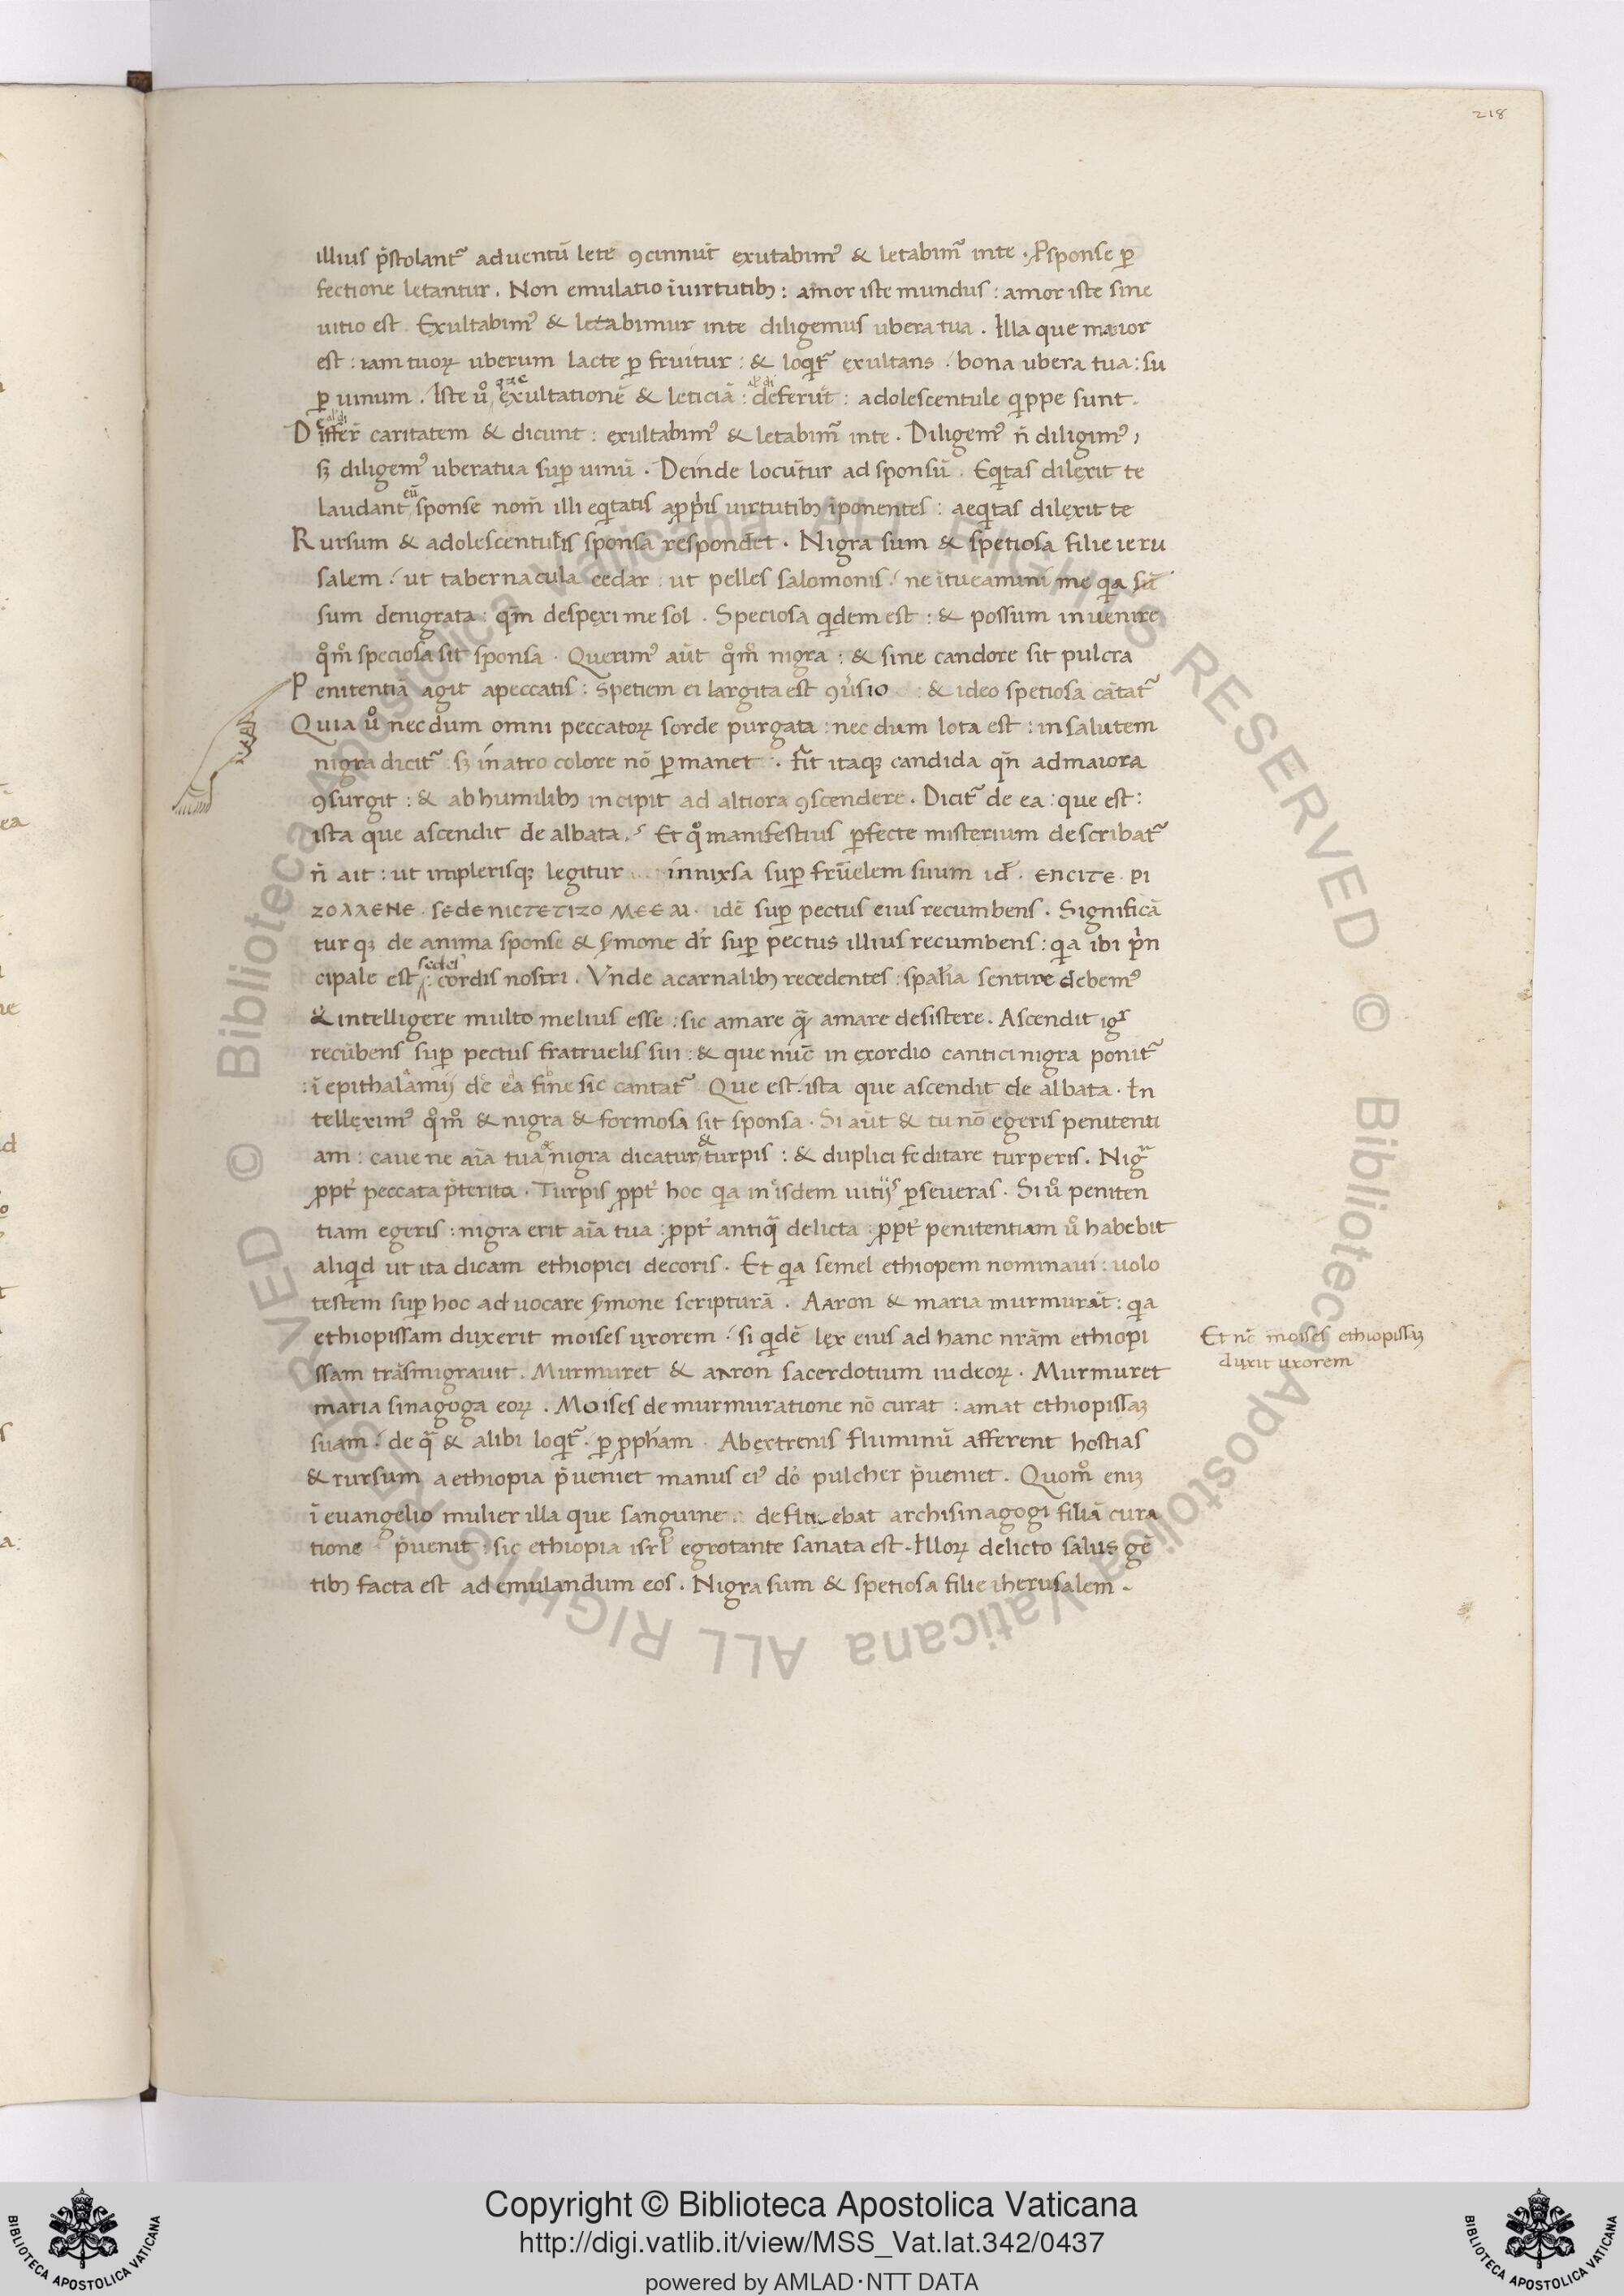 218
illius p̄stolant᷑ aduentū lete ꝯcinnūt exutabimꝰ & letabim᷑ inte . Ꝓsponse ꝑ
fectione letantur . Non emulatio i uirtutibꝫ : amor iste mundus : amor iste sine
uitio est . Exultabimꝰ & letabimur inte diligemus ubera tua . Illa que maior
est : iam tuoꝝ uberum lacte ꝑ fruitur : & loqͥt᷑ exultans . bona ubera tua : su
ꝑ uinum . Iste uͦ, quae exultationē & leticiā : deferūt : adolescentule qͥppe sunt .
Differ̄t caritatem & dicunt : exultabimꝰ & letabim᷑ inte . Diligemꝰ n̄ diligimꝰ ,
sꝫ diligemꝰ ubera tua suꝑ uinū . Deinde locūtur ad sponsū . Eqͥtas dilexit te
laudant eū sponse nom̄ illi eqͥtatis aꝓpͥis uirtutibꝫ īponentes : aeqͥtas dilexit te
Rursum & adolescentulis sponsa respondet . Nigra sum & spetiosa filie ieru
salem : ut tabernacula cedar : ut pelles salomonis : ne ītueamini me qͥa sū
sum denigrata : qm̄ despexi me sol . Speciosa qͥdem est : & possum inuenire
qͦmͦ speciosa sit sponsa . Querimꝰ aūt qͦmͦ nigra : & sine candore sit pulcra
Penitentiā agit apeccatis : spetiem ei largita est ꝯuͥsio : & ideo spetiosa cātat᷑
Quia uͦ necdum omni peccatoꝝ sorde purgata : nec dum lota est : in salutem
nigra dicit᷑ : sꝫ in atro colore nō ꝑmanet . fīt itaqꝫ candida qn̄ admaiora
ꝯsurgit : & ab humilibꝫ incipit ad altiora ꝯscendere . Dicit᷑ de ea : que est :
ista que ascendit de albata . Et qͦ manifestius ꝑfecte misterium describat᷑
n̄ ait : ut inplerisqꝫ legitur innixsa suꝑ fruēlem suum id̄ . ENCITE . PI
ZOΛΛENE . SEDENICTETIZO MEEAI . idē suꝑ pectus eius recumbens . Significā
tur qꝫ de anima sponse & s̄mone dr̄ suꝑ pectus illius recumbens : qͥa ibi pͥn
cipale est sedes : cordis nostri . Vnde acarnalibꝫ recedentes : spalīa sentire debemꝰ
& intelligere multo melius esse : sic amare qᷓ amare desistere . Ascendit igͬ
recūbens suꝑ pectus fratruelis sui : & que nūc in exordio cantici nigra ponit᷑
: ī epithalamij de ea fine sic cantat᷑ Que est ista que ascendit de albata . In
tellexim&#x27;ꝰ qͦmͦ & nigra & formosa sit sponsa . Si aūt & tu nō egeris penitenti
am : caue ne aīa tua & nigra dicatur & turpis : & duplici feditare turperis . Nigᷓ
ꝓpt̄ peccata pͥterita . Turpis ꝓpt̄ hoc qͥa in eisdem uitijs ꝑseueras . Si uͦ peniten
tiam egeris : nigra erit aīa tua : ꝓpt̄ antiqᷓ delicta : ꝓpt̄ penitentiam uͦ habebit
aliqͥd ut ita dicam ethiopici decoris . Et qͥa semel ethiopem nominaui : uolo
testem suꝑ hoc aduocare s̄mone scripturā . Aaron & maria murmurāt : qͥa
ethiopissam duxerit moises uxorem . si qͥdē lex eius ad hanc nrām ethiopi
ssam trāsmigrauit . Murmuret & aaron sacerdotium iudeoꝝ . Murmuret
maria sinagoga eoꝝ . Moises de murmuratione nō curat : amat ethiopissaꝫ
suam : de qᷓ & alibi loqͥt᷑ . ꝑ ꝓpham . Abextrenis fluminū afferent hostias
& rursum a ethiopia pͥueniet manus eiꝰ dō pulcher pͥueniet . Quomͦ eniꝫ
ī euangelio mulier illa que sanguine defluebat archisinagogi filiā cura
tione pͥuenit : sic ethiopia isrl̄ egrotante sanata est . Illoꝝ delicto salus gē
tibꝫ facta est ad emulandum eos . Nigra sum & spetiosa filie iherusalem .
Et nc̄ moises ethiopissaꝫ
duxit uxorem
Copyright © Biblioteca Apostolica Vaticana
http://digi.vatlib.it/view/MSS_Vat.lat.342/0437
powered by AMLAD·NTT DATA
BIBLIOTECA APOSTOLICA VATICANA
BIBLIOTECA APOSTOLICA VATICANA
© Biblioteca Apostolica Vaticana ALL RIGHTS RESERVED © Biblioteca Apostolica Vaticana ALL RIGHTS RESERVED